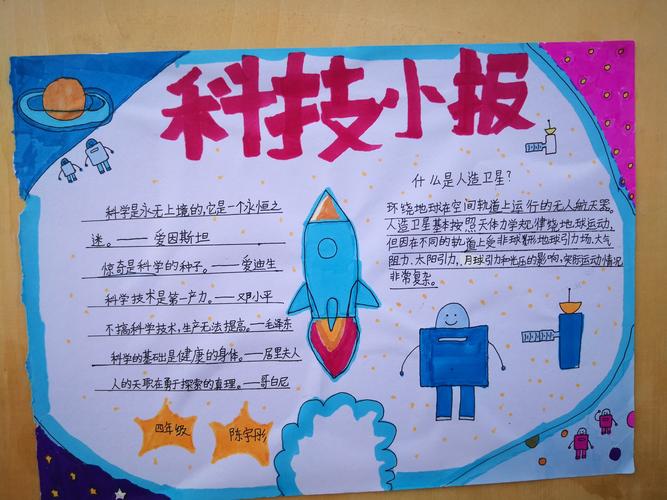 科技小报
科学是永无上境的,它是一个永恒之
迷。——爱因斯坦
惊奇是科学的种子。——爱迪生
科学技术是第一产力。——邓小平
不搞科学技术,生产无法提高。——毛泽东
科学的基础是健康的身体。——居里夫人
人的天职在勇于探索的真理。——哥白尼
四年级
陈宇彤
什么是人造卫星?
环绕地球在空间轨道上运行的无人航天器。
人造卫星基本按照天体力学规律绕地球运动,
但因在不同的轨道上受非球形地球引力场、大气
阻力、太阳引力、月球引力和光压的影响,实际运动情况
非常复杂。